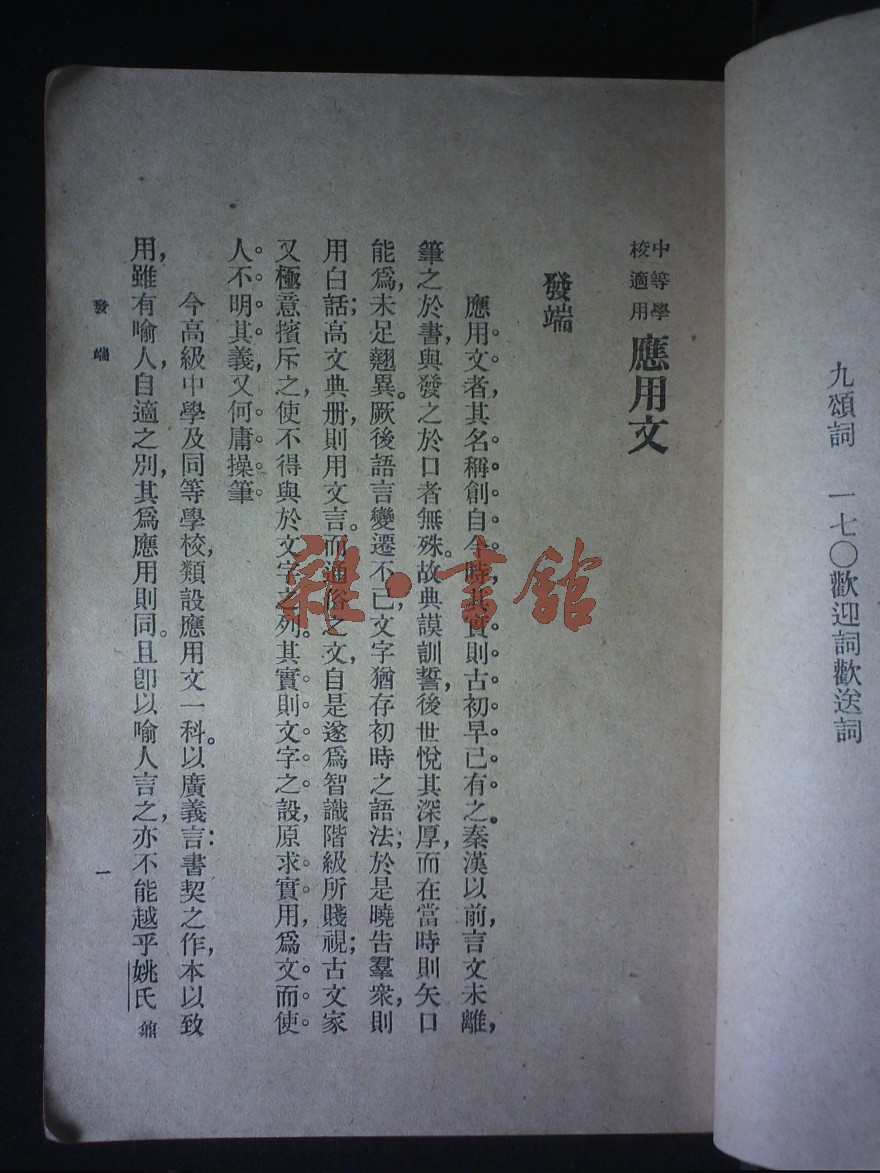 九頌詞　一七〇歡迎詞歡送詞
中等學校適用 應用文
發端
應用文者，其名稱創自今時，其實則古初早已有之。秦漢以前，言文未離，
筆之於書，與發之於口者無殊。故典謨訓誓，後世悅其深厚，而在當時則矢口
能爲，未足翹異。厥後語言變遷不已，文字猶存初時之語法；於是曉告羣衆，則
用白話；高文典册，則用文言。而通俗之文，自是遂爲智識階級所賤視；古文家
又極意擯斥之，使不得與於文字之列。其實則文字之設，原求實用，爲文而使
人不明其義，又何庸操筆。
今高級中學及同等學校，類設應用文一科。以廣義言：書契之作，本以致
用，雖有喻人自適之別，其爲應用則同。且卽以喻人言之，亦不能越乎姚氏鼐
發端
一
雜·書館